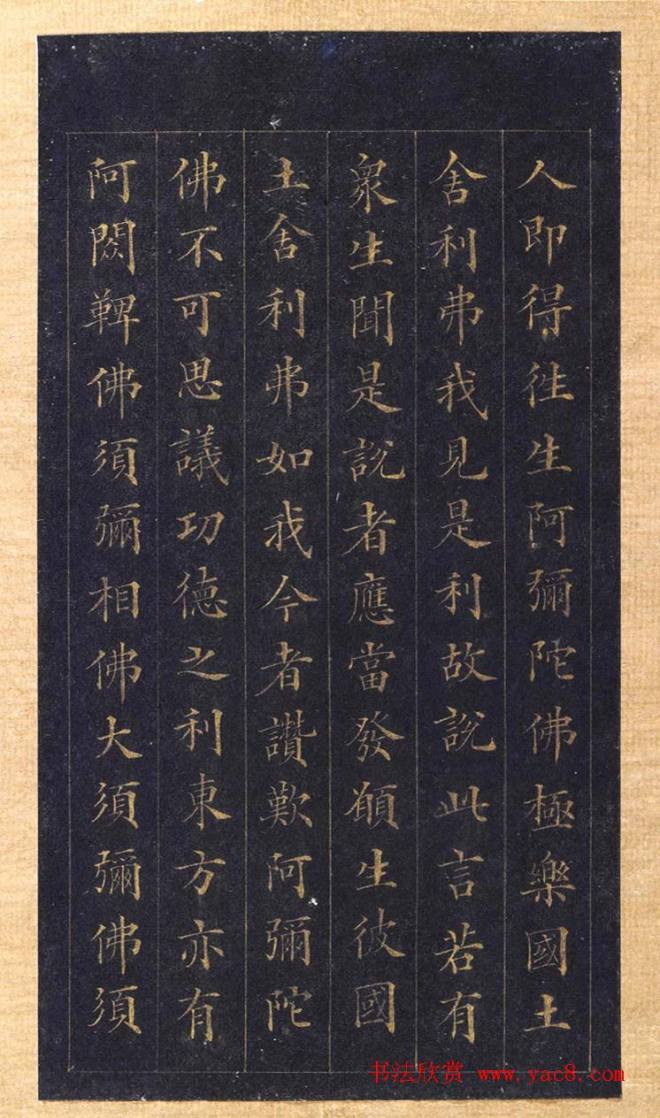 人即得徃生阿彌陀佛極樂國土
舍利弗我見是利故說此言若有
衆生聞是說者應當發願生彼國
土舍利弗如我今者讚歎阿彌陀
佛不可思議功德之利東方亦有
阿閦鞞佛須彌相佛大須彌佛須
书法欣赏 www.yac8.com